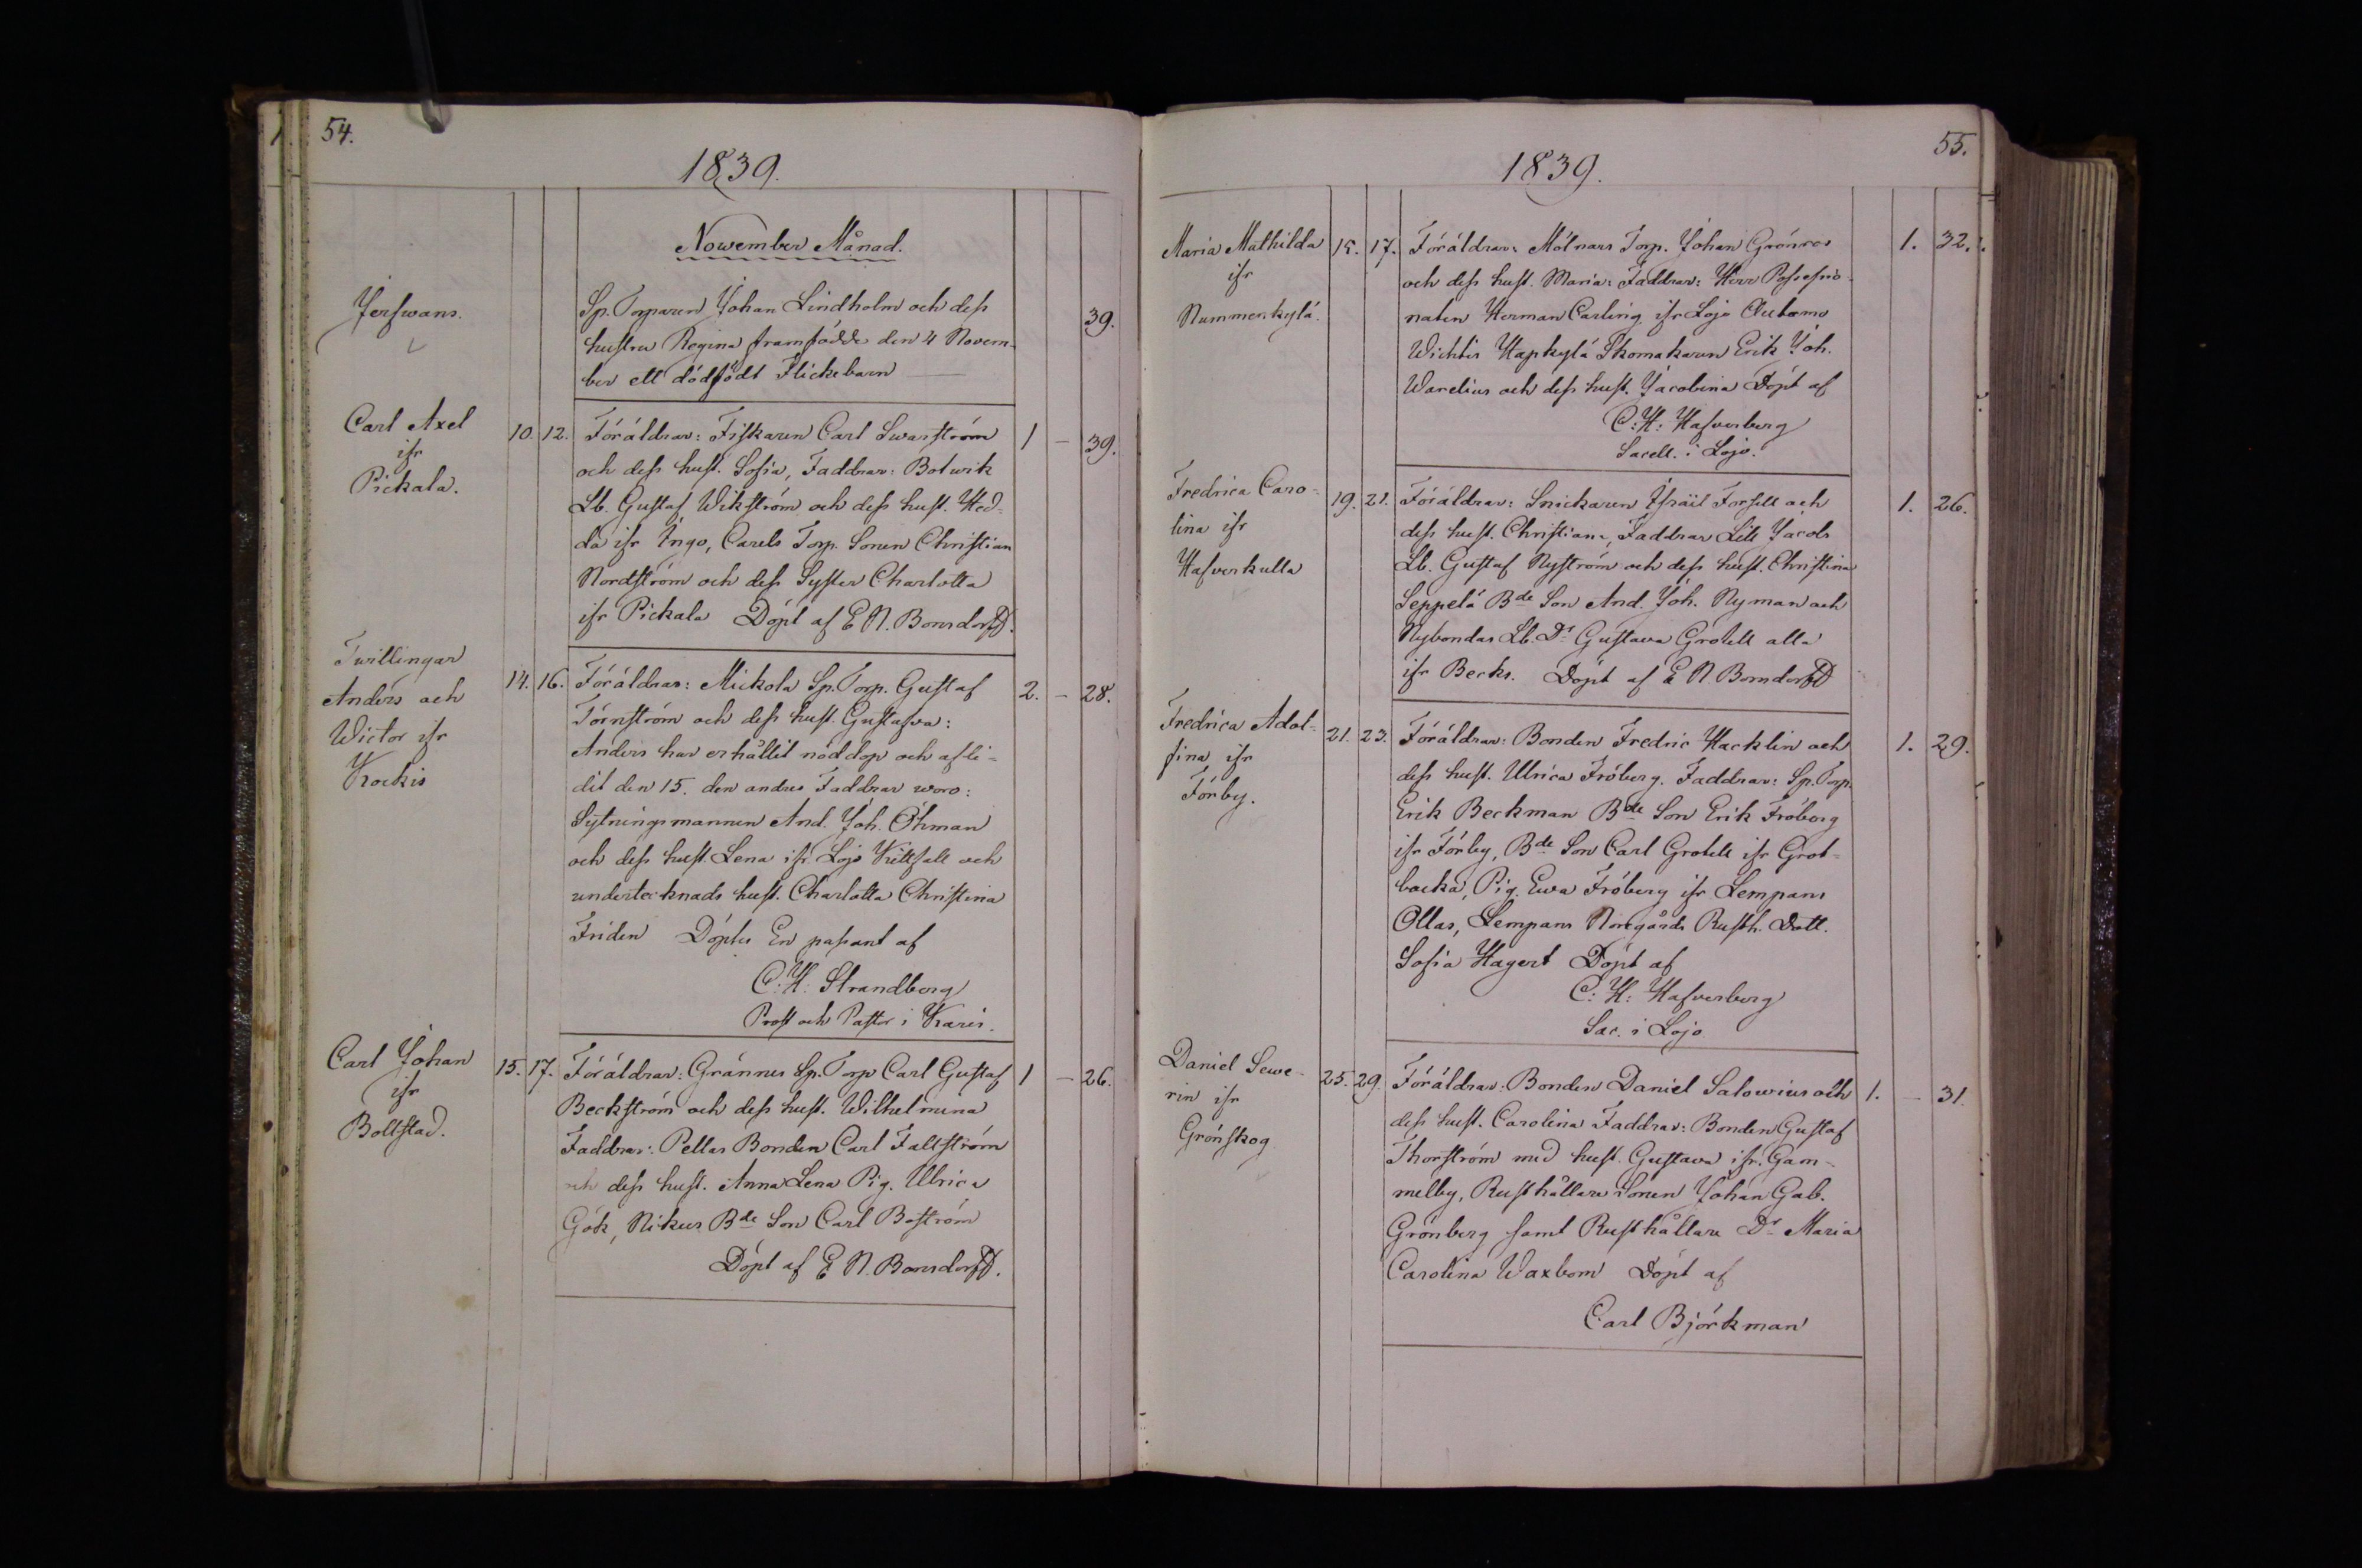 54.
1839.
November Månad.
Jerswans.
Sp. Torparen Johan Lindholm och dess
hustru Regina framfödde den 4 Novem-
ber ett dödfödt Flickebarn
39.
Carl Axel
ifr
Pickala.
10. 12. Föräldrar: Fiskaren Carl Swanström 1 - 39.
och dess hust. Sofia, Faddrar: Botwik
Lb. Gustaf Wikström och dess hust. Hed-
da ifr Ingo, Carels Torp. Sonen Christian
Nordström och dess Syster Charlotta
ifr Pickala Döpt af E N. Bonsdorff.
Twillingar
Anders och
Wictor ifr
Kockis
14. 16. Föräldrar: Mickola Sp. Torp. Gustaf 2. - 28.
Törnström och dess hust. Gustafva:
Anders har erhållit nöddop och afli-
dit den 15. den andres Faddrar woro:
Sytningsmannen And. Joh. Öhman
och dess hust. Lena ifr. Lojo Kittfall och
undertecknads hust. Charlotta Christina
Friden Döptes En passant af
C. H. Strandberg
Prost och Pastor i Karis.
Carl Johan
ifr
Boltstad.
15. 17. Föräldrar: Grännes Sp. Torp Carl Gustaf 1 - 26.
Beckström och dess hust. Wilhelmina
Faddrar: Pellas Bonden Carl Faltström
och dess hust. Anna Lena Pig. Ulrica
Gök, Nikus Bde Son Carl Boström
Döpt af E N. Bonsdorff.
55.
1839.
Maria Mathilda
ifr
Nummenkylä.
15. 17. Föräldrar: Mölnars Torp. Johan Grönroos 1. 32.
och dess hust. Maria: Faddrar: Herr Possessio-
naten Herman Carling ifr Lojo
Wichtis Hapkylä Skomakaren Erik Joh.
Warelius och dess hust. Jacobina Döpt af
C: H: Hafverberg
Sacell. i Lojo.
Fredrica Caro-
lina ifr
Hafverkulla
19. 21. Föräldrar: Snickaren Israil Forsell och 1. 26.
dess hust. Christian, Faddrar Lill Jacobs
Lb. Gustaf Nyström och dess hust. Christina
Seppelä Bde Son And. Joh. Nyman och
Nybondas Lb. Dr Gustava Grotell alla
ifr Becks. Döpt af E N Bonsdorff
Fredrica Adol-
fina ifr
Förby.
21. 23. Föräldrar: Bonden Fredric Hacklin och 1. 29.
dess hust. Ulrica Fröberg. Faddrar: Sp. Torp.
Erik Beckman Bde Son Erik Fröberg
ifr Förby, Bde Son Carl Grotell ifr Grot-
backa, Pig. Ewa Fröberg ifr Lempans
Ollas, Lempans Norrgårds Rusth. Dott.
Sofia Hagert Döpt af
C: H: Hafverberg
Sac. i Lojo
Daniel Sewe-
rin ifr
Grönskog
25. 29. Föräldrar: Bonden Daniel Salowius och 1. - 31.
dess hust. Carolina Faddrar: Bonden Gustaf
Thorström med hust. Gustava ifr. Gam-
melby, Rusthållare Sonen Johan Gab.
Grönberg samt Rusthållare Dr Maria
Carolina Waxbom Döpt af
Carl Björkman